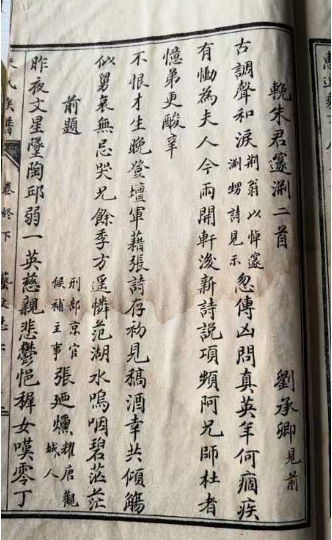 輓朱君邃淵二首 劉承卿見前
古調聲和淚 荆翁以悼邃淵甥詩見示 忽傳凶問真英年何痼疾
有慟為夫人今雨開軒後新詩說項頻阿兄師杜者
憶弟更酸辛
不恨才生晚登壇軍藉張詩存初見稿酒幸共傾觴
似舅衰無忌哭兄餘季方遥憐范湖水嗚咽碧茫茫
前題 刑部京官候補主事 張廼爔 耀唐觀城人
昨夜文星墜陶邱弱一英慈親悲鬱悒稺女嘆零丁
氏族譜 卷終下 藝文志